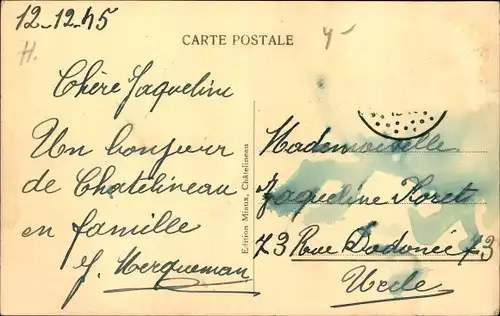 12-12-45
H.
CARTE POSTALE
Chère Jaqueline
Un bonjour
de Chatelineau
en famille
J. Merqueman
Edition Miaux, Châtelineau
Mademoiselle
Jaqueline Koret
73 Rue Dodonée 73
Uccle